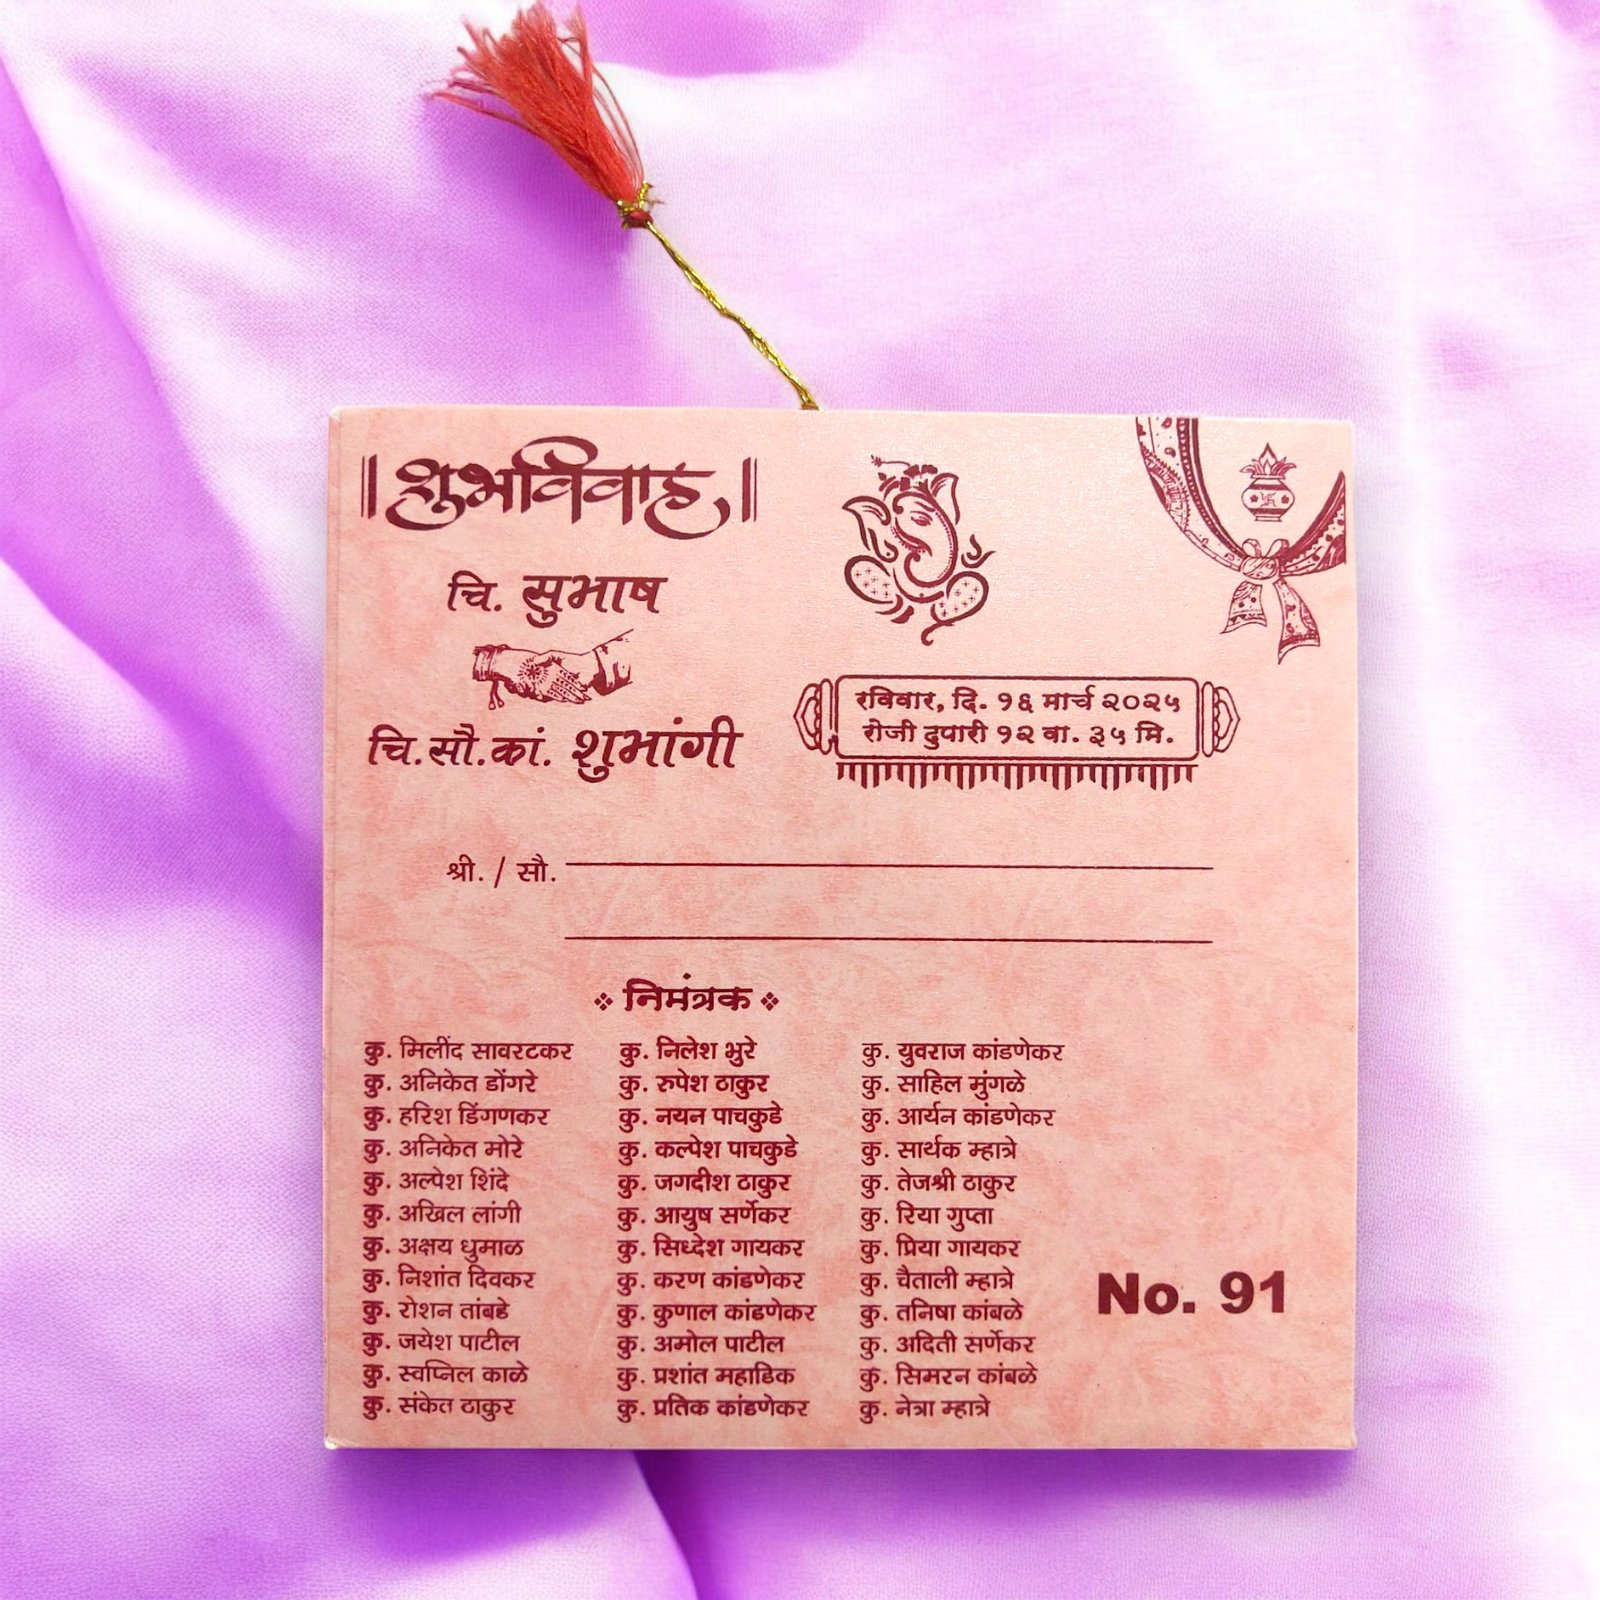 ॥ शुभविवाह ॥
चि. सुभाष
चि.सौ.कां. शुभांगी
रविवार, दि. १६ मार्च २०२५
रोजी दुपारी १२ वा. ३५ मि.
श्री. / सौ.
निमंत्रक
कु. मिलींद सावरटकर
कु. अनिकेत डोंगरे
कु. हरिश डिंगणकर
कु. अनिकेत मोरे
कु. अल्पेश शिंदे
कु. अखिल लांगी
कु. अक्षय धुमाळ
कु. निशांत दिवकर
कु. रोशन तांबडे
कु. जयेश पाटील
कु. स्वप्निल काळे
कु. संकेत ठाकुर
कु. निलेश भुरे
कु. रुपेश ठाकुर
कु. नयन पाचकुडे
कु. कल्पेश पाचकुडे
कु. जगदीश ठाकुर
कु. आयुष सर्णेकर
कु. सिध्देश गायकर
कु. करण कांडणेकर
कु. कुणाल कांडणेकर
कु. अमोल पाटील
कु. प्रशांत महाडिक
कु. प्रतिक कांडणेकर
कु. युवराज कांडणेकर
कु. साहिल मुंगळे
कु. आर्यन कांडणेकर
कु. सार्थक म्हात्रे
कु. तेजश्री ठाकुर
कु. रिया गुप्ता
कु. प्रिया गायकर
कु. चैताली म्हात्रे
कु. तनिषा कांबळे
कु. अदिती सर्णेकर
कु. सिमरन कांबळे
कु. नेत्रा म्हात्रे
No. 91